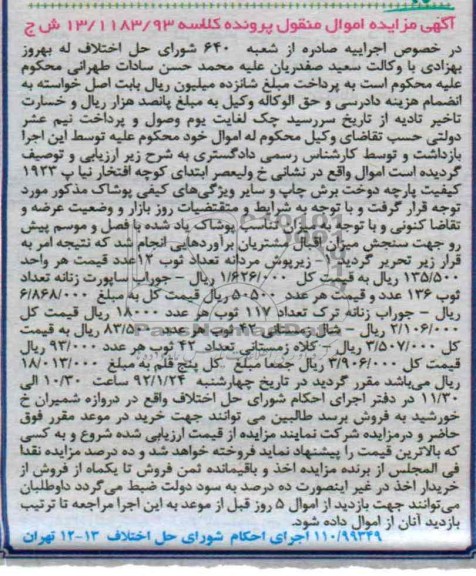 آگهی مزایده اموال منقول پرونده کلاسه ۱۳/۱۱۸۳/۹۳ ش ج
در خصوص اجراییه صادره از شعبه ۶۴۰ شورای حل اختلاف له بهروز
بهزادی با وکالت سعید صفدریان علیه محمد حسن سادات طهرانی محکوم
علیه محکوم است به پرداخت مبلغ شانزده میلیون ریال بابت اصل خواسته به
انضمام هزینه دادرسی و حق الوکاله وکیل به مبلغ پانصد هزار ریال و خسارت
تاخیر تادیه از تاریخ سررسید چک لغایت یوم وصول و پرداخت نیم عشر
دولتی حسب تقاضای وکیل محکوم له اموال خود محکوم علیه توسط این اجرا
بازداشت و توسط کارشناس رسمی دادگستری به شرح زیر ارزیابی و توصیف
گردیده است اموال واقع در نشانی خ ولیعصر ابتدای کوچه افتخار نیا پ ۱۹۲۳
کیفیت پارچه دوخت برش چاپ و سایر ویژگی‌های کیفی پوشاک مذکور مورد
توجه قرار گرفت و با توجه به شرایط و مقتضیات روز بازار و وضعیت عرضه و
تقاضا کنونی و با توجه به میزان تناسب پوشاک یاد شده با فصل و موسم پیش
رو جهت سنجش میزان اقبال مشتریان برآوردهایی انجام شد که نتیجه امر به
قرار زیر تحریر گردید ۱- زیرپوش مردانه تعداد ثوب ۱۲عدد قیمت هر واحد
۱۳۵/۵۰۰ ریال به قیمت کل ۱/۶۲۶/۰۰۰ ریال – جوراب ساپورت زنانه تعداد
ثوب ۱۳۶ عدد و قیمت هر عدد ۵۰۵۰۰ ریال قیمت کل به مبلغ ۶/۸۶۸/۰۰۰
ریال – جوراب زنانه ترک تعداد ۱۱۷ ثوب هر عدد ۱۸۰۰۰ ریال قیمت کل
۲/۱۰۶/۰۰۰ ریال – شال زمستانی ۴۲ ثوب هر عدد ۸۳/۵۰۰ ریال به قیمت
کل ۳/۵۰۷/۰۰۰ ریال – کلاه زمستانی تعداد ۴۲ ثوب هر عدد ۹۳/۰۰۰ ریال
قیمت کل ۳/۹۰۶/۰۰۰ ریال جمعا مبلغ کل پنج قلم به مبلغ ۱۸/۰۱۳/۰۰۰
ریال می‌باشد مقرر گردید در تاریخ چهارشنبه ۹۲/۱/۲۴ ساعت ۱۰/۳۰ الی
۱۱/۳۰ در دفتر اجرای احکام شورای حل اختلاف واقع در دروازه شمیران خ
خورشید به فروش برسد طالبین می توانند جهت خرید در موعد مقرر فوق
حاضر و درمزایده شرکت نمایند مزایده از قیمت ارزیابی شده شروع و به کسی
که بالاترین قیمت را پیشنهاد نماید فروخته خواهد شد و ده درصد مزایده نقدا
فی المجلس از برنده مزایده اخذ و باقیمانده ثمن فروش تا یکماه از فروش از
خریدار اخذ در غیر اینصورت ده درصد به سود دولت ضبط می‌گردد داوطلبان
می‌توانند جهت بازدید از اموال ۵ روز قبل از موعد به این اجرا مراجعه تا ترتیب
بازدید آنان از اموال داده شود.
۱۱۰/۹۹۳۴۹ اجرای احکام شورای حل اختلاف ۱۳-۱۲ تهران